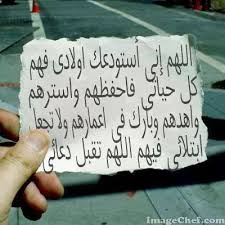 اللهم إني أستودعك اولادى فهم
كل حياتي فاحفظهم واسترهم
واهدهم وبارك فى اعمارهم ولا تجعل
ابتلائي فيهم اللهم تقبل دعائي
ImageChef.com